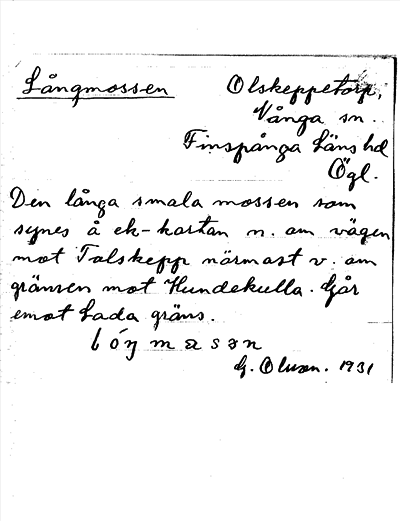 Långmossen
Olskeppetorp,
Vånga sn.
Finspånga Läns hd
Ögl.
Den långa smala mossen som
synes å ek-kartan n. om vägen
mot Tolskepp närmast v. om
gränsen mot Hundekulla. Går
emot Lada gräns.
lóŋmasən
G. Olson. 1931